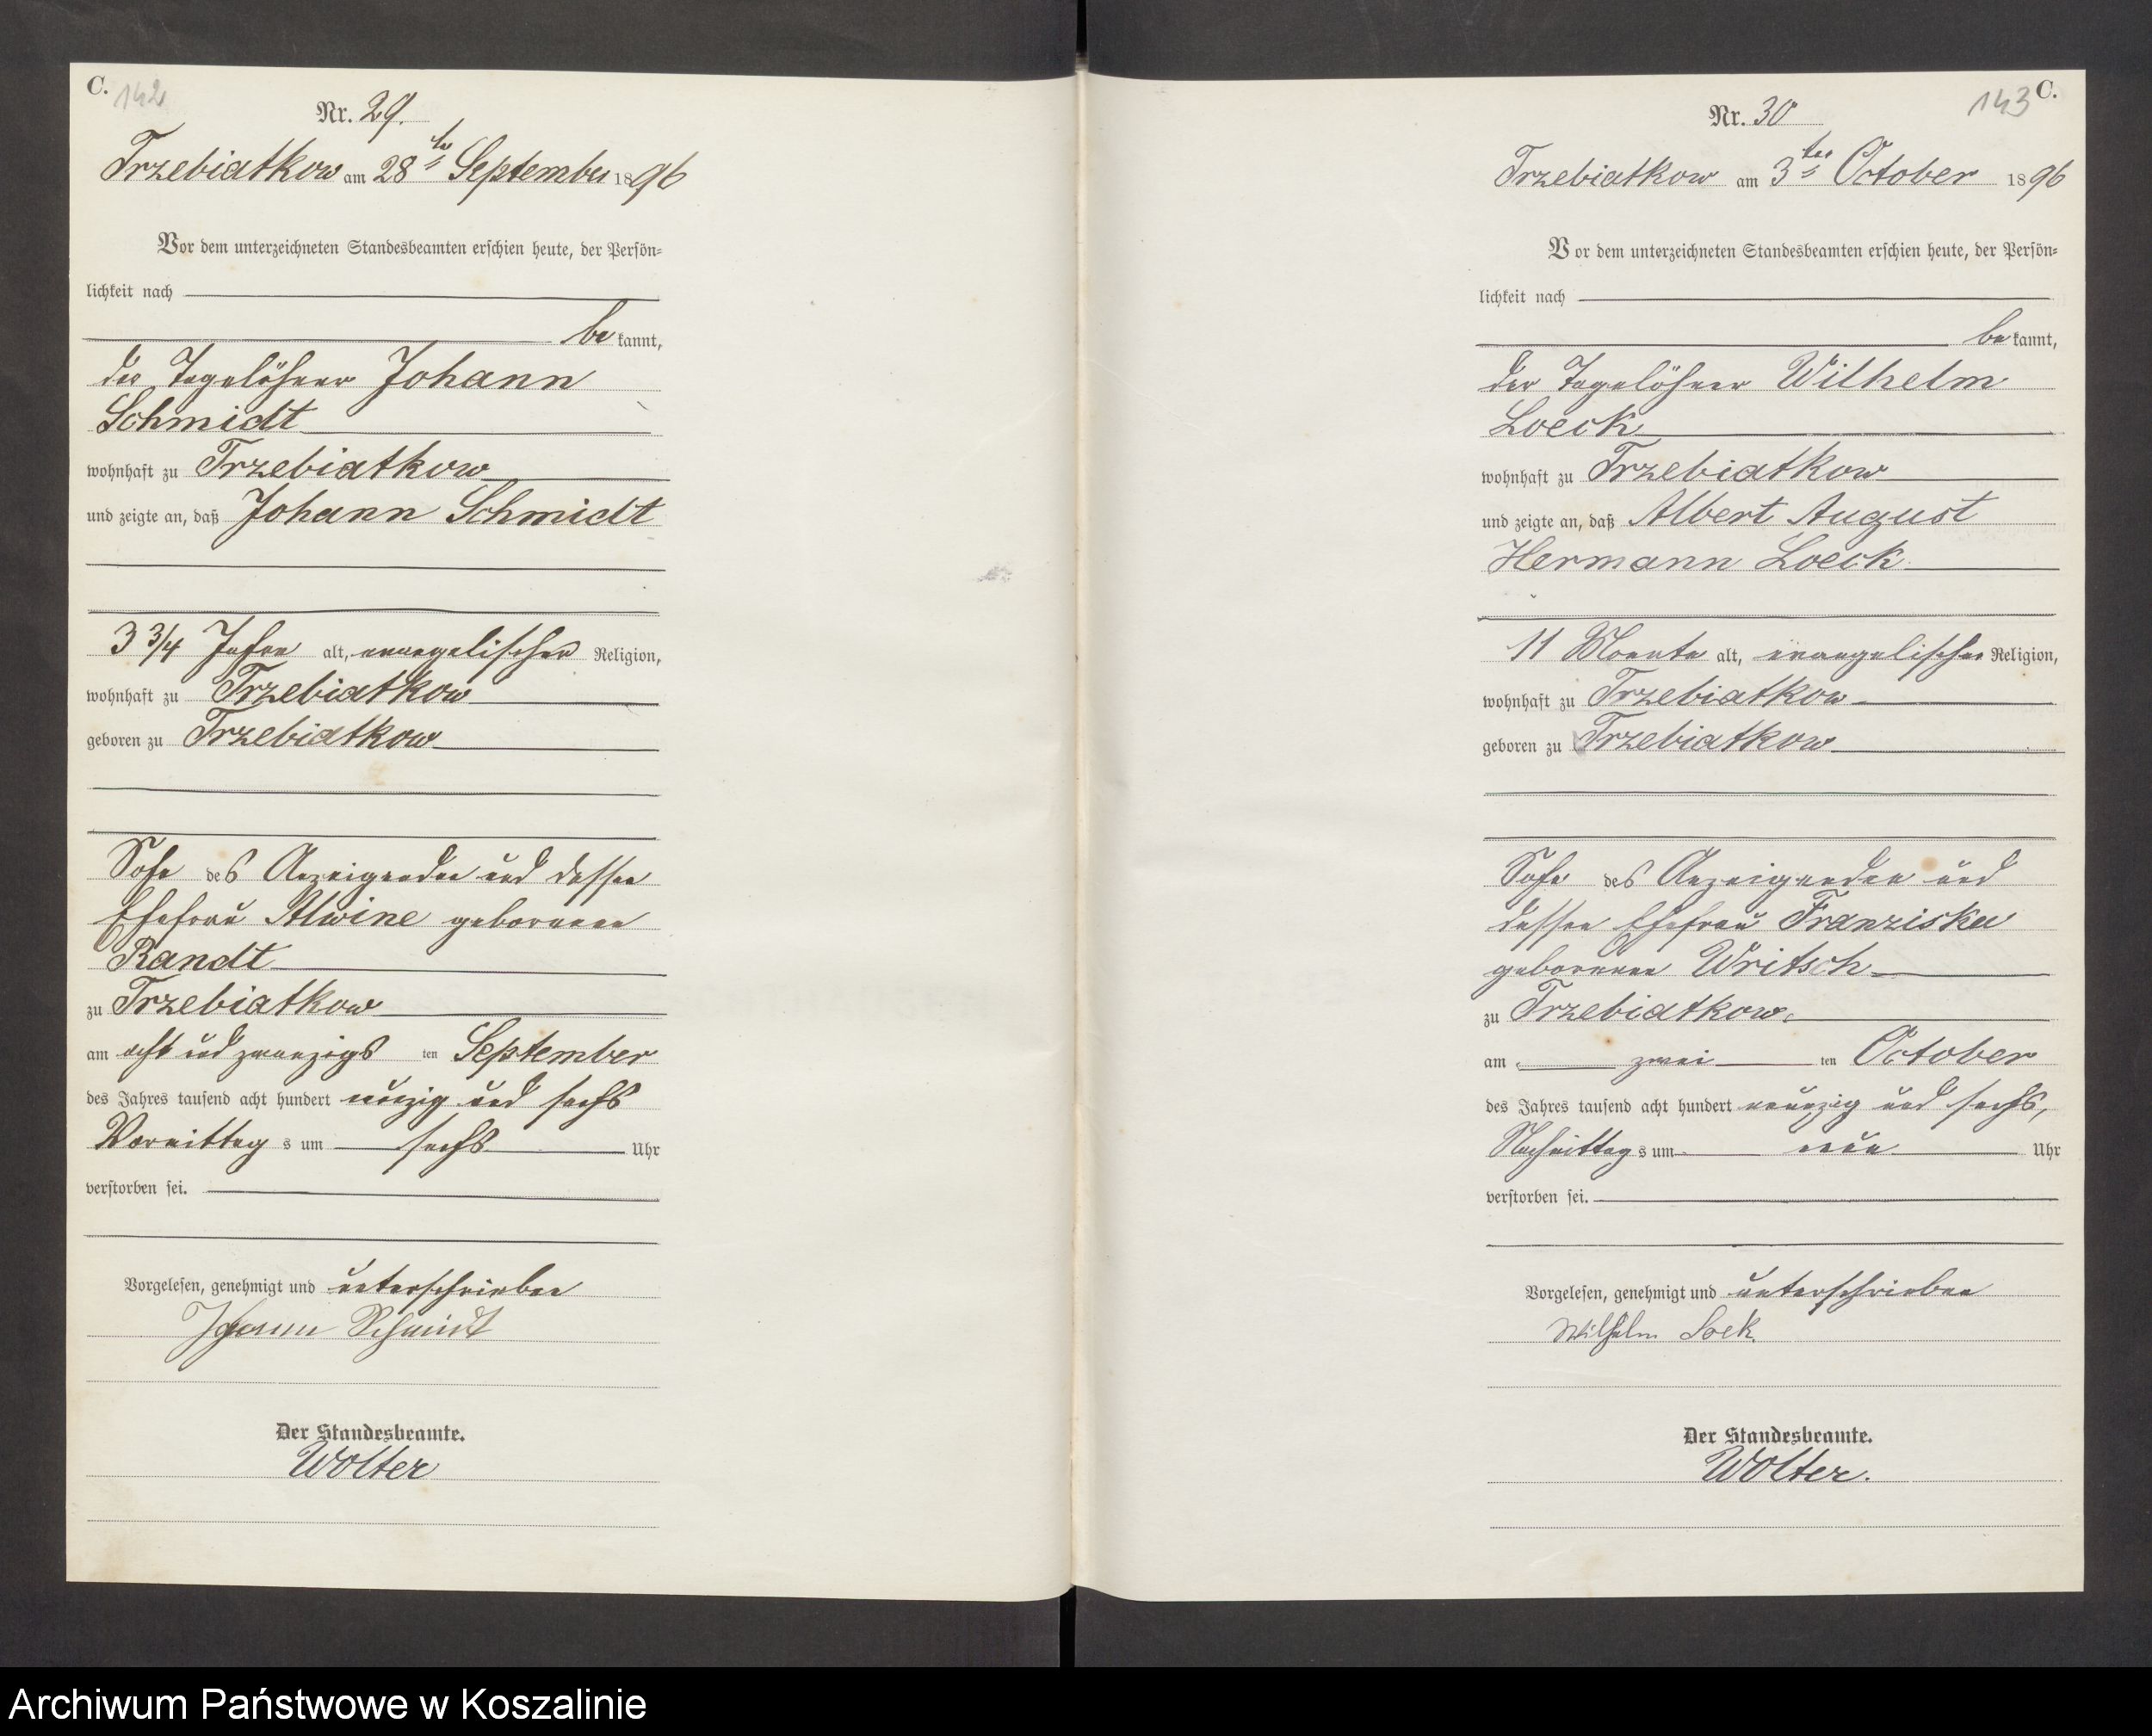 C.
142
Nr. 29.
Trzebiatkow am 28ten September 1896
Vor dem unterzeichneten Standesbeamten erschien heute, der Persön=
lichkeit nach
be kannt,
der Tagelöhner Johann
Schmidt
wohnhaft zu Trzebiatkow
und zeigte an, daß Johann Schmidt
3 3/4 Jahre alt, evangelischer Religion,
wohnhaft zu Trzebiatkow
geboren zu Trzebiatkow
Sohn des Anzeigenden und dessen
Ehefrau Alwine geborenen
Randt
zu Trzebiatkow
am acht und zwanzigs ten September
des Jahres tausend acht hundert neunzig und sechs
Vormittag s um sechs Uhr
verstorben sei.
Vorgelesen, genehmigt und unterschrieben
Johann Schmidt
Der Standesbeamte.
Wolter
143 C.
Nr. 30
Trzebiatkow am 3ten October 1896
Vor dem unterzeichneten Standesbeamten erschien heute, der Persön=
lichkeit nach
be kannt,
der Tagelöhner Wilhelm
Loeck
wohnhaft zu Trzebiatkow
und zeigte an, daß Albert August
Hermann Loeck
11 Monate alt, evangelischer Religion,
wohnhaft zu Trzebiatkow
geboren zu Trzebiatkow
Sohn des Anzeigenden und
dessen Ehefrau Franziska
geborenen Writsch
zu Trzebiatkow
am zwei ten October
des Jahres tausend acht hundert neunzig und sechs,
Nachmittag s um neun Uhr
verstorben sei.
Vorgelesen, genehmigt und unterschrieben
Wilhelm Loek.
Der Standesbeamte.
Wolter.
Archiwum Państwowe w Koszalinie